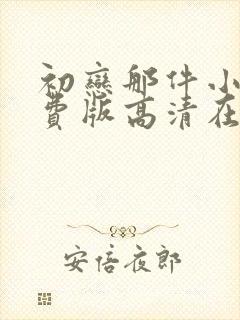 初戀那件小
費版高清在
安倍夜郎